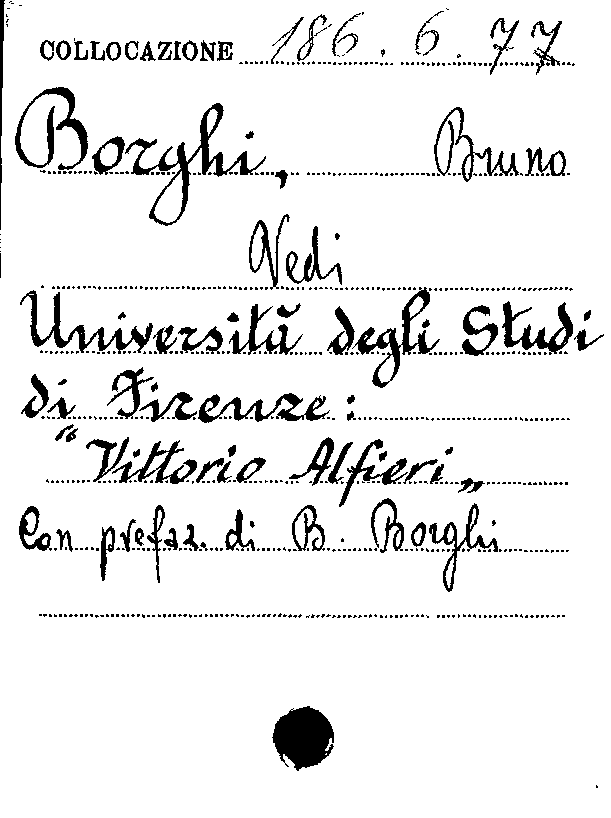 COLLOCAZIONE 186.6.77
Borghi, Bruno
Vedi
Università degli Studi
di Firenze:
"Vittorio Alfieri„
Con prefaz. di B. Borghi